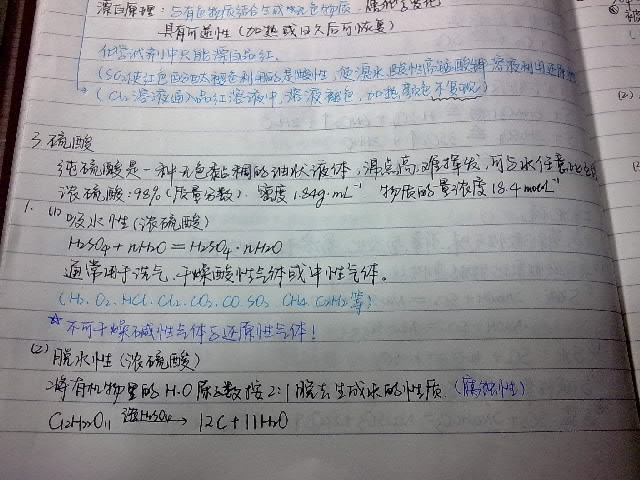 漂白原理：与有色物质结合生成无色物质
具有可逆性（加热或日久后可恢复）
化学试剂中只能漂白品红.
（Cl₂溶液通入品红溶液中，溶液褪色，加热颜色不复现）
3. 硫酸
纯硫酸是一种无色黏稠的油状液体，沸点高，难挥发，可与水任意比
浓硫酸：98%（质量分数）. 密度1.84g·mL⁻¹ 物质的量浓度18.4mol·L⁻¹
1. (1) 吸水性（浓硫酸）
H₂SO₄+nH₂O=H₂SO₄·nH₂O
通常用于洗气，干燥酸性气体或中性气体。
（H₂. O₂. HCl. Cl₂. CO₂. CO. SO₂ CH₄. C₂H₄等）
☆不可干燥碱性气体与还原性气体！
(2) 脱水性（浓硫酸）
将有机物里的H.O原子数按2:1脱去生成水的性质.（腐蚀性）
C₁₂H₂₂O₁₁ 浓H₂SO₄→ 12C+11H₂O
(2).